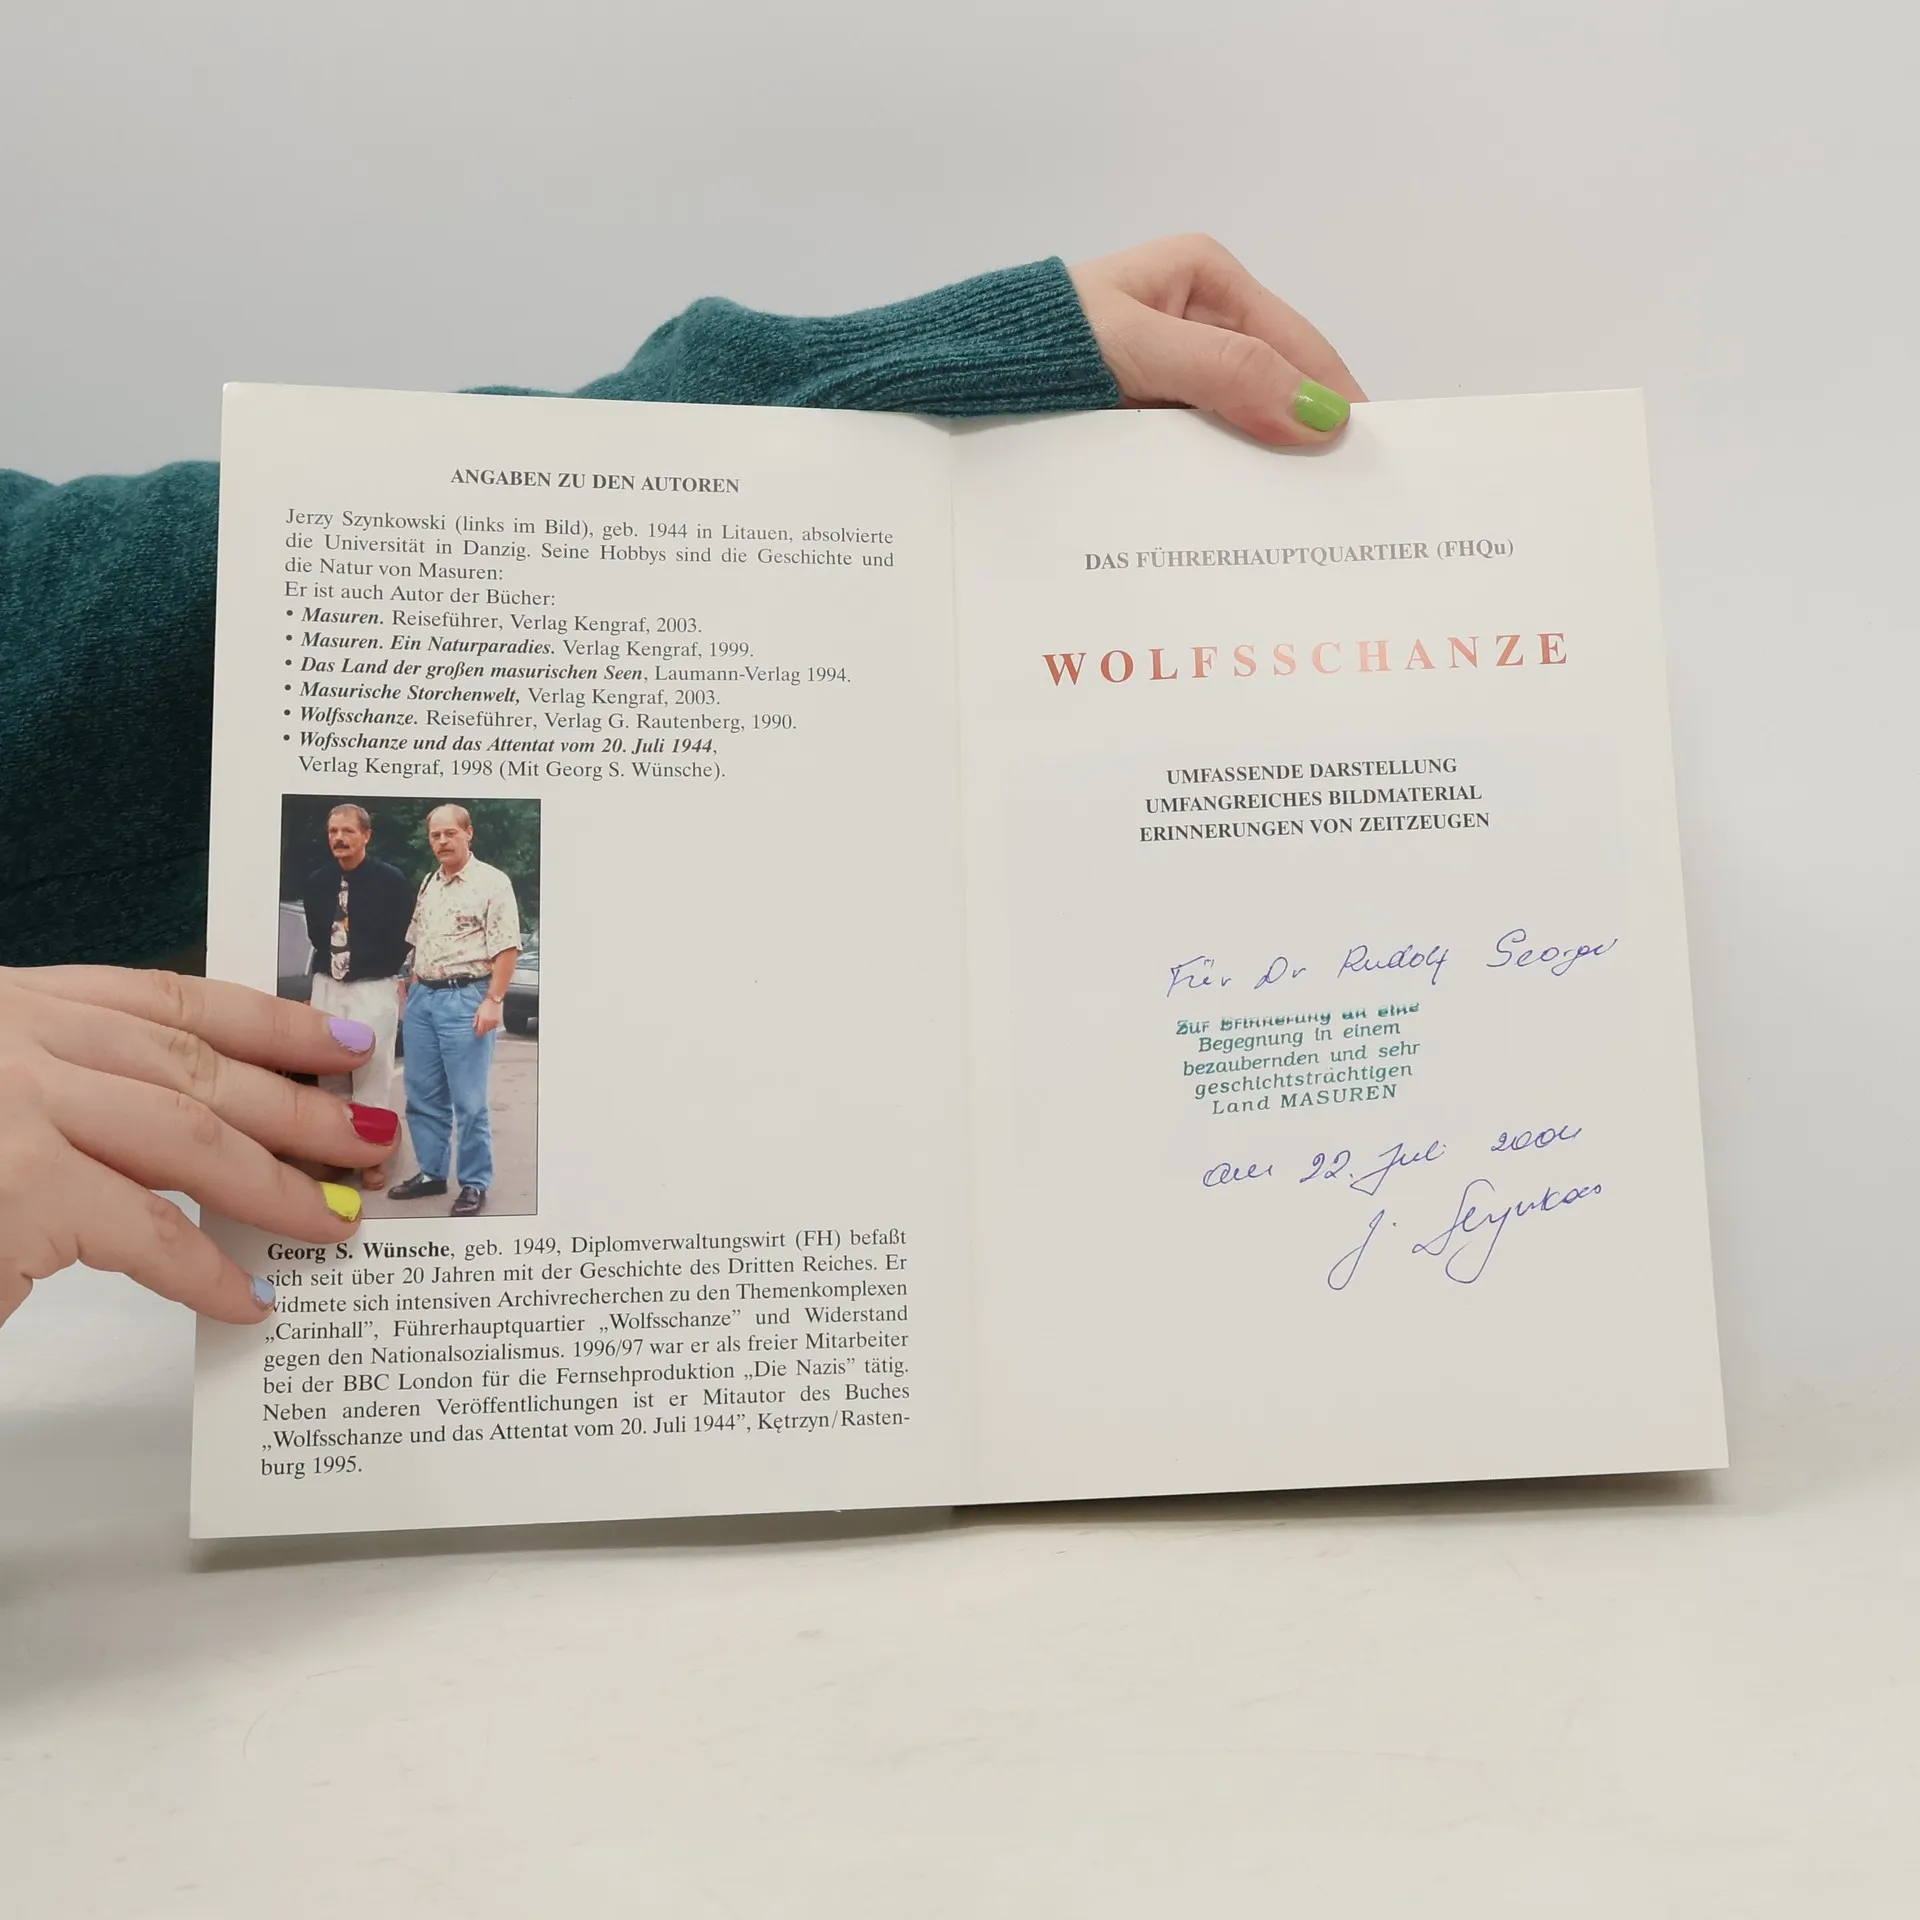 ANGABEN ZU DEN AUTOREN
Jerzy Szynkowski (links im Bild), geb. 1944 in Litauen, absolvierte
die Universität in Danzig. Seine Hobbys sind die Geschichte und
die Natur von Masuren:
Er ist auch Autor der Bücher:
• Masuren. Reiseführer, Verlag Kengraf, 2003.
• Masuren. Ein Naturparadies. Verlag Kengraf, 1999.
• Das Land der großen masurischen Seen, Laumann-Verlag 1994.
• Masurische Storchenwelt, Verlag Kengraf, 2003.
• Wolfsschanze. Reiseführer, Verlag G. Rautenberg, 1990.
• Wofsschanze und das Attentat vom 20. Juli 1944,
Verlag Kengraf, 1998 (Mit Georg S. Wünsche).
Georg S. Wünsche, geb. 1949, Diplomverwaltungswirt (FH) befaßt
sich seit über 20 Jahren mit der Geschichte des Dritten Reiches. Er
widmete sich intensiven Archivrecherchen zu den Themenkomplexen
„Carinhall”, Führerhauptquartier „Wolfsschanze” und Widerstand
gegen den Nationalsozialismus. 1996/97 war er als freier Mitarbeiter
bei der BBC London für die Fernsehproduktion „Die Nazis” tätig.
Neben anderen Veröffentlichungen ist er Mitautor des Buches
„Wolfsschanze und das Attentat vom 20. Juli 1944”, Kętrzyn/Rasten-
burg 1995.
DAS FÜHRERHAUPTQUARTIER (FHQu)
WOLFSSCHANZE
UMFASSENDE DARSTELLUNG
UMFANGREICHES BILDMATERIAL
ERINNERUNGEN VON ZEITZEUGEN
Für Dr Rudolf
Zur Erinnerung an eine
Begegnung in einem
bezaubernden und sehr
geschichtsträchtigen
Land MASUREN
am 22. Juli 2004
J.